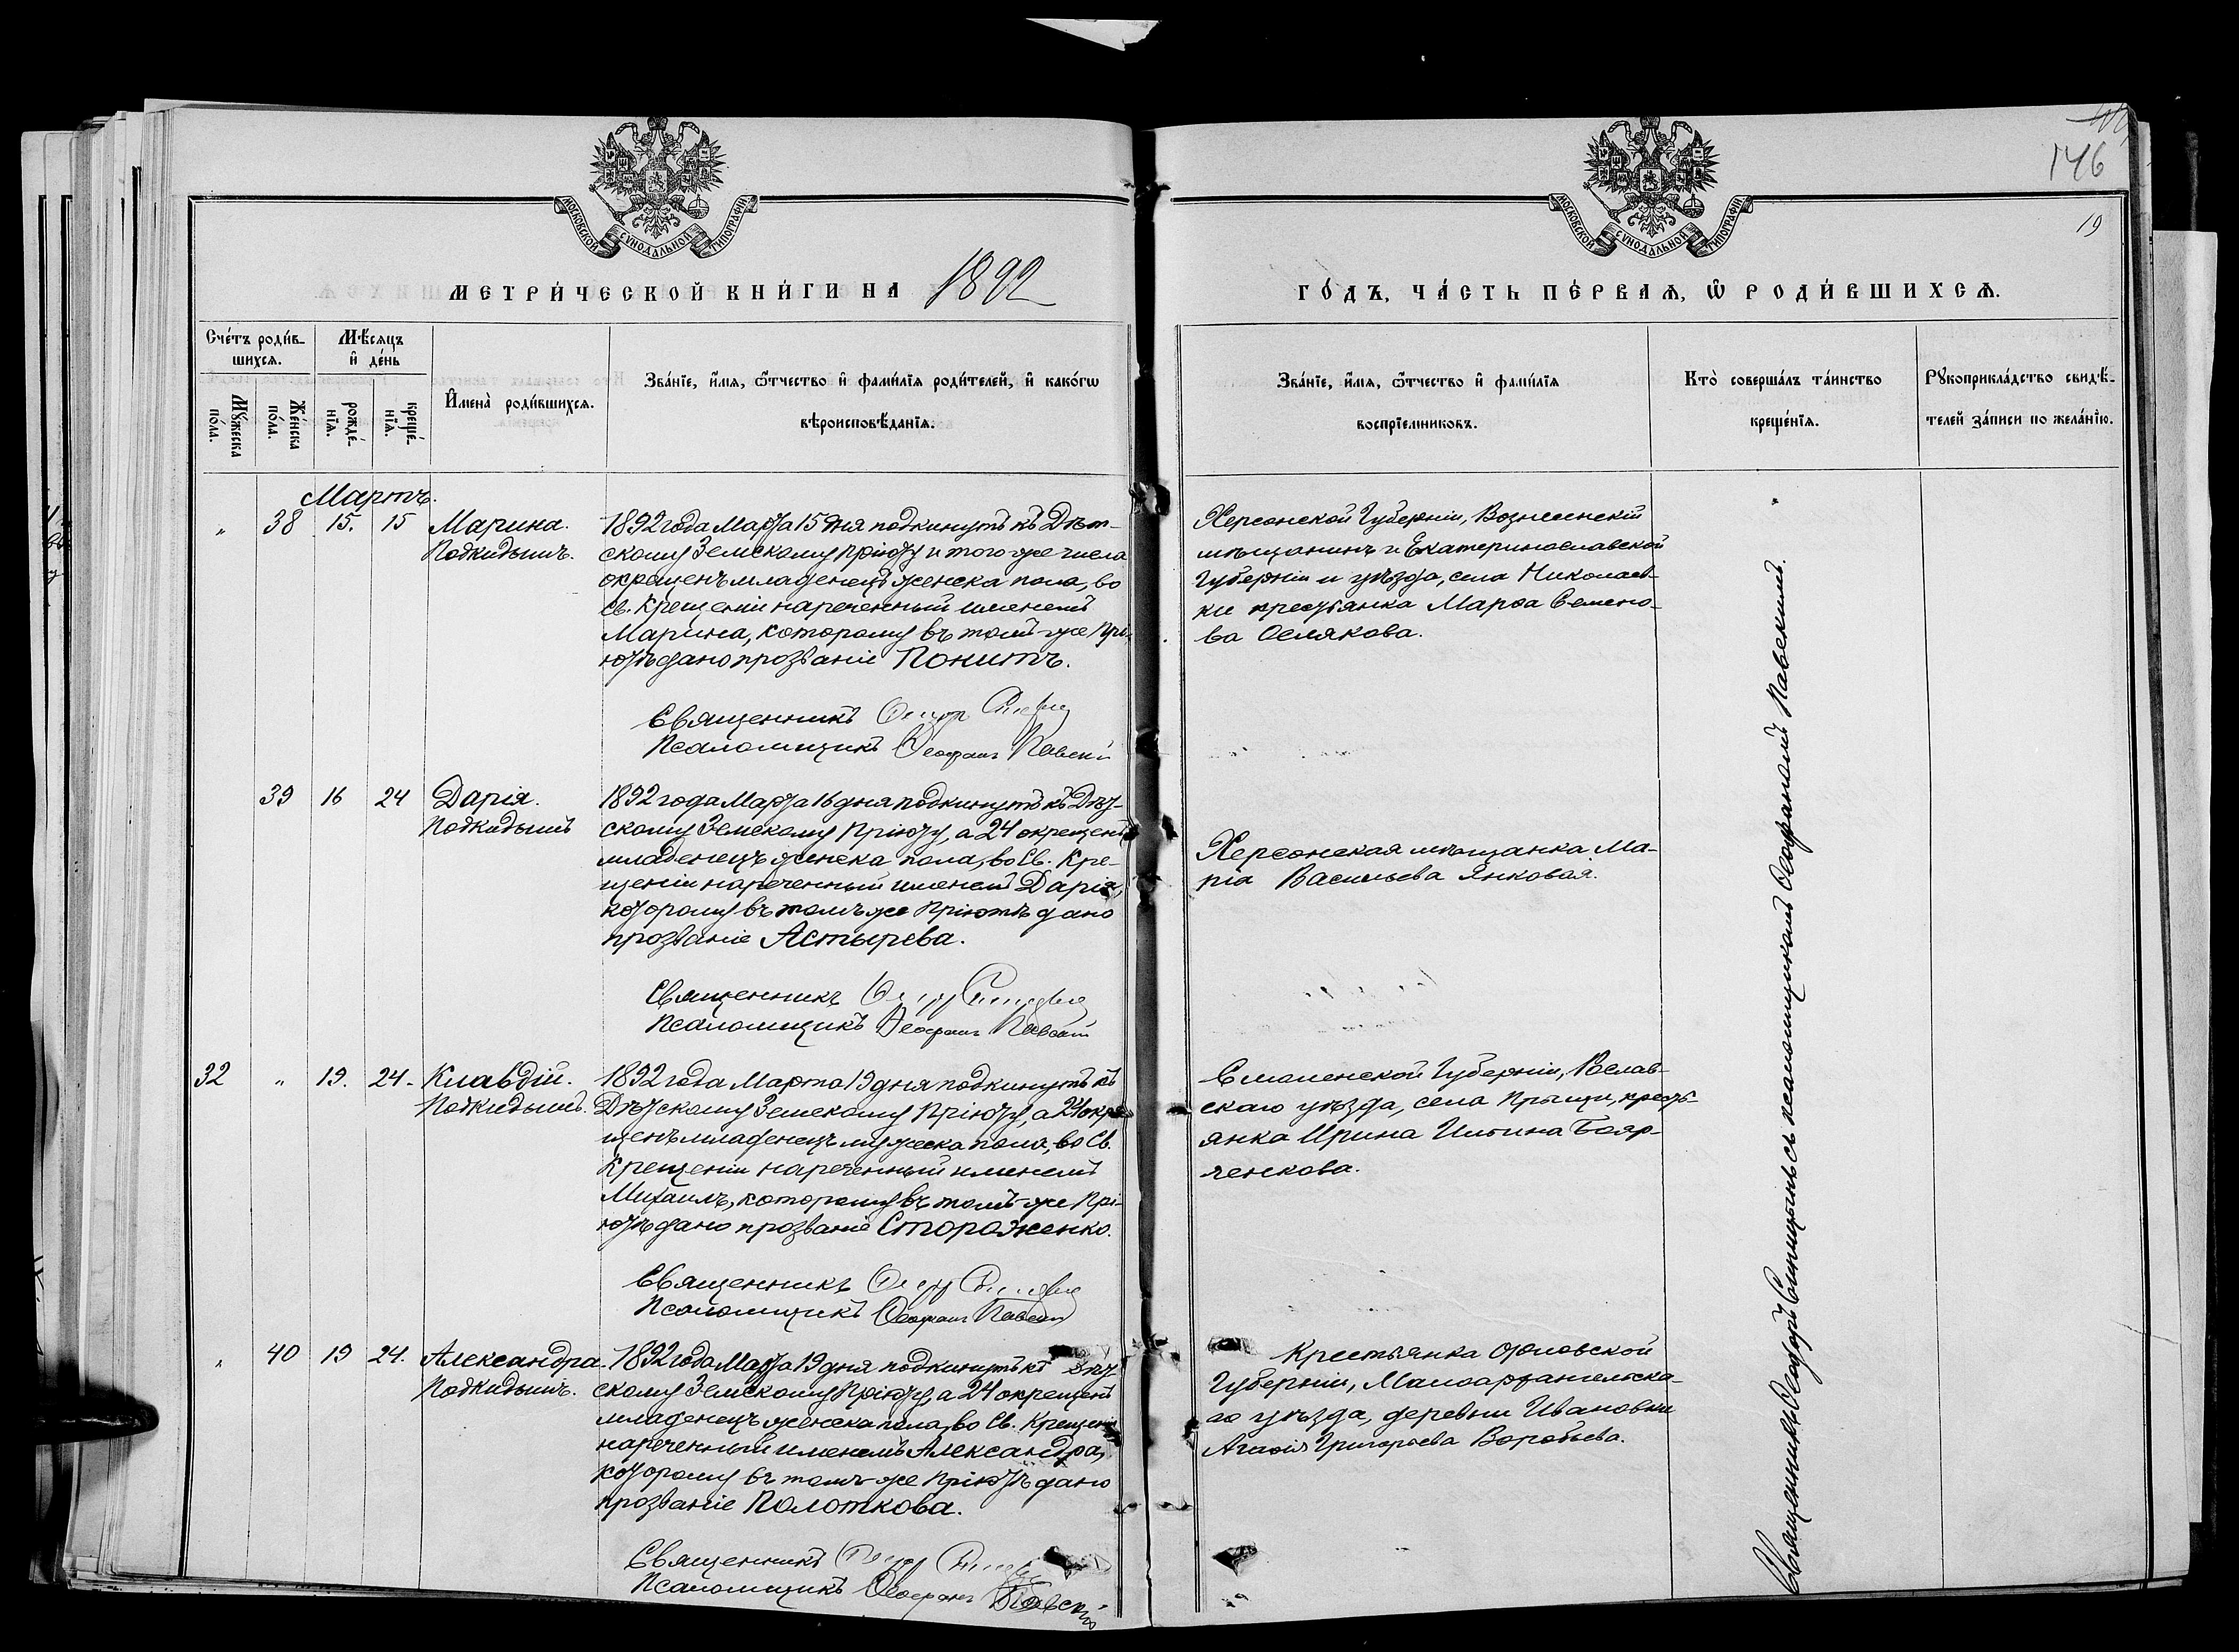 146
19
МОСКОВСКОЙ СУНОДАЛЬНОЙ ТИПОГРАФІИ
МОСКОВСКОЙ СУНОДАЛЬНОЙ ТИПОГРАФІИ
МЕТРИ́ЧЕСКОЙ КНИ́ГИ НА 1892
ГО́ДЪ, ЧА́СТЬ ПЕ́РВАѦ, Ѡ҆ РОДИ́ВШИХСѦ.
Сче́тъ роди́в-
шихсѧ.
Мꙋ́жеска по́ла.
Же́нска по́ла.
Мѣ́сѧцъ
и҆ де́нь
рожде́-
нїѧ.
креще́-
нїѧ.
И҆мена̀ роди́вшихсѧ.
Зва́нїе, и҆́мѧ, ѻ҆́тчество и҆ фами́лїѧ роди́телей, и҆ како́гѡ
вѣроисповѣ́данїѧ.
Зва́нїе, и҆́мѧ, ѻ҆́тчество и҆ фами́лїѧ
воспрїе́мниковъ.
Кто̀ соверша́лъ та́инство
креще́нїѧ.
Рꙋкоприкла́дство свидѣ́-
телей за́писи по жела́нїю.
Мартъ.
" 38 15. 15 Марина.
Подкидышъ.
1892 года Марта 15 дня подкинутъ къ Дѣт-
скому Земскому Пріюту и того-же числа
окрещенъ младенецъ женска пола, во
св. Крещеніи нареченный именемъ
Марина, которому въ томъ-же Прі-
ютѣ дано прозваніе Понитъ.
Священникъ
Псаломщикъ Ѳеофанъ Павскій
Херсонской Губерніи, Вознесенскій
мѣщанинъ и Екатеринославской
Губерніи и уѣзда, села Николаев-
ки крестьянка Марѳа Семено-
ва Ослякова.
39 16 24 Дарія.
Подкидышъ
1892 года Марта 16 дня подкинутъ къ Дѣт-
скому Земскому Пріюту, а 24 окрещенъ
младенецъ женска пола, во Св. Кре-
щеніи нареченный именемъ Дарія,
которому въ томъ же Пріютѣ дано
прозваніе Астырева.
Священникъ
Псаломщикъ Ѳеофанъ Павскій
Херсонская мѣщанка Ма-
рія Васильева Янковая.
32 " 19. 24. Клавдій.
Подкидышъ.
1892 года Марта 19 дня подкинутъ къ
Дѣтскому Земскому Пріюту, а 24 окре-
щенъ младенецъ мужеска пола, во Св.
Крещеніи нареченный именемъ
Михаилъ, которому въ томъ-же Прі-
ютѣ дано прозваніе Стороженко.
Священникъ
Псаломщикъ Ѳеофанъ Павскій
Смоленской Губерніи, Рослав-
скаго уѣзда, села Прыщи, кресть-
янка Ирина Иитина Бояр-
ченкова.
" 40 19 24. Александра.
Подкидышъ.
1892 года Марта 19 дня подкинутъ къ Дѣт-
скому Земскому Пріюту, а 24 окрещенъ
младенецъ женска пола, во Св. Крещеніи
нареченный именемъ Александра,
которому въ томъ-же Пріютѣ дано
прозваніе Полоткова.
Священникъ
Псаломщикъ Ѳеофанъ Павскій
Крестьянка Орловской
Губерніи, Малоархангельска-
го уѣзда, деревни Ивановки
Агафія Григорьева Воробьева.
Священникъ Ѳеодоръ Синицынъ съ псаломщикомъ Ѳеофаномъ Павскимъ.